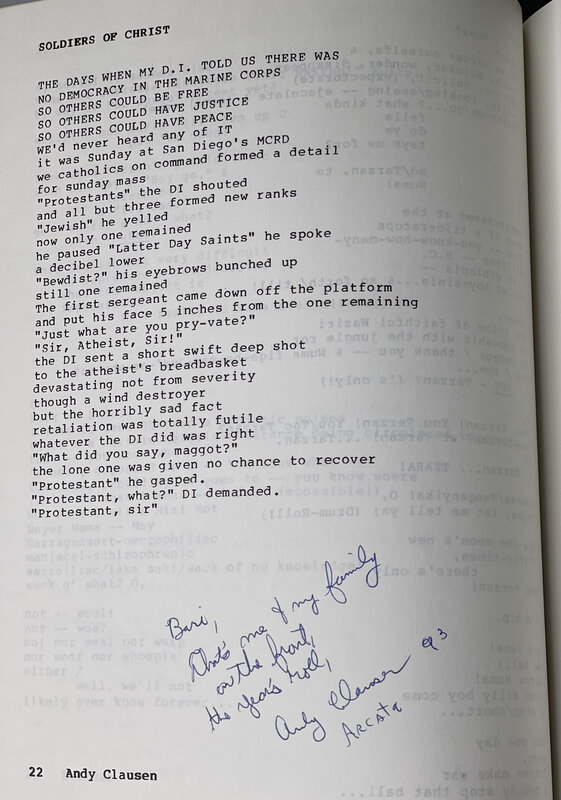 SOLDIERS OF CHRIST
THE DAYS WHEN MY D.I. TOLD US THERE WAS
NO DEMOCRACY IN THE MARINE CORPS
SO OTHERS COULD BE FREE
SO OTHERS COULD HAVE JUSTICE
SO OTHERS COULD HAVE PEACE
WE'd NEVER HEARD ANY OF IT
it was Sunday at San Diego's MCRD
we catholics on command formed a detail
for sunday mass
"Protestants" the DI shouted
and all but three formed new ranks
"Jewish" he yelled
now only one remained
he paused "Latter Day Saints" he spoke
a decibel lower
"Bewdist?" his eyebrows bunched up
still one remained
The first sergeant came down off the platform
and put his face 5 inches from the one remaining
"Just what are you pry-vate?"
"Sir, Atheist, Sir!"
the DI sent a short swift deep shot
to the atheist's breadbasket
devastating not from severity
though a wind destroyer
but the horribly sad fact
retaliation was totally futile
whatever the DI did was right
"What did you say, maggot?"
the lone one was given no chance to recover
"Protestant" he gasped.
"Protestant, what?" DI demanded.
"Protestant, sir"
Bari,
That's me & my family
on the front,
the year's roll,
Andy Clausen 93
Arcata
22 Andy Clausen